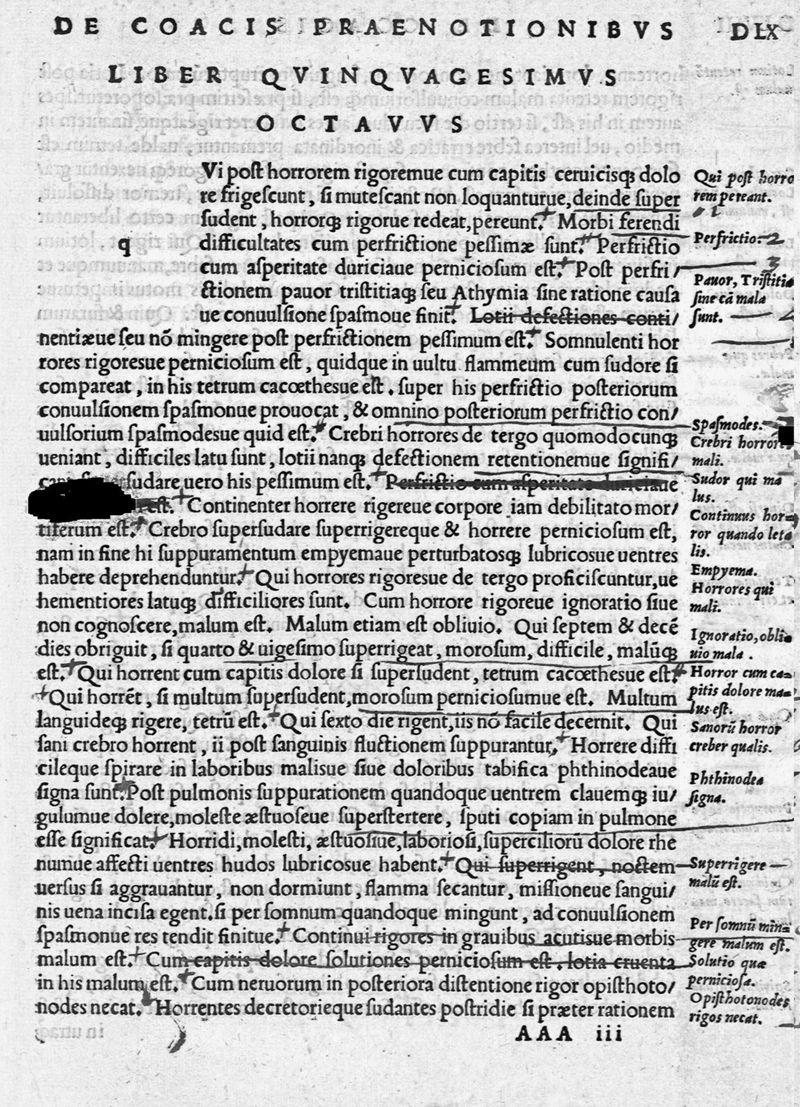 DE COACIS PRAENOTIONIBVS DLX
LIBER QVINQVAGESIMVS
OCTAVVS
Vi post horrorem rigoremue cum capitis ceruicisq́ dolo
re frigescunt, si mutescant non loquanturue, deinde super
sudent, horrorq́ rigorue redeat, pereunt. Morbi ferendi
q difficultates cum perfrictione pessimæ sunt. Perfrictio
cum asperitate duriciaue perniciosum est. Post perfri/
ctionem pauor tristitiaq́ seu Athymia sine ratione causa
ue conuulsione spasmoue finit. Lotii defectiones conti/
nentiæue seu nõ mingere post perfrictionem pessimum est. Somnulenti hor
rores rigoresue perniciosum est, quidque in uultu flammeum cum sudore si
compareat, in his tetrum cacoethesue est. super his perfrictio posteriorum
conuulsionem spasmonue prouocat, & omnino posteriorum perfrictio con/
uulsorium spasmodesue quid est. Crebri horrores de tergo quomodocunq́
ueniant, difficiles latu sunt, lotii nanq́ defectionem retentionemue signifi/
sudare uero his pessimum est. Perfrictio cum asperitate duriciaue
est. Continenter horrere rigereue corpore iam debilitato mor/
tiferum est. Crebro supersudare superrigereque & horrere perniciosum est,
nam in fine hi suppuramentum empyemaue perturbatosq́ lubricosue uentres
habere deprehenduntur. Qui horrores rigoresue de tergo proficiscuntur, ue
hementiores latuq́ difficiliores sunt. Cum horrore rigoreue ignoratio siue
non cognoscere, malum est. Malum etiam est obliuio. Qui septem & decẽ
dies obriguit, si quarto & uigesimo superrigeat, morosum, difficile, malũq́
est. Qui horrent cum capitis dolore si supersudent, tetrum cacoethesue est.
Qui horrẽt, si multum supersudent, morosum perniciosumue est. Multum
languideq́ rigere, tetrũ est. Qui sexto die rigent, iis nõ facile decernit. Qui
sani crebro horrent, ii post sanguinis fluctionem suppurantur. Horrere diffi
cileque spirare in laboribus malisue siue doloribus tabifica phthinodeaue
signa sunt. Post pulmonis suppurationem quandoque uentrem clauemq́ iu/
gulumue dolere, moleste æstuoseue superstertere, sputi copiam in pulmone
esse significat. Horridi, molesti, æstuosiue, laboriosi, superciliorũ dolore rhe
numue affecti uentres hudos lubricosue habent. Qui superrigent, noctem
uersus si aggrauantur, non dormiunt, flamma secantur, missioneue sangui/
nis uena incisa egent, si per somnum quandoque mingunt, ad conuulsionem
spasmonue res tendit finitue. Continui rigores in grauibus acutisue morbis
malum est. Cum capitis dolore solutiones perniciosum est, lotia cruenta
in his malum est. Cum neruorum in posteriora distentione rigor opisthoto/
nodes necat. Horrentes decretorieque sudantes postridie si præter rationem
AAA iii
Qui post horro
rem pereant.
1
Perfrictio. 2
3
Pauor, Tristitia
sine cã mala
sunt.
Spasmodes.
Crebri horrores
mali.
Sudor qui ma
lus.
Continuus hor
ror quando leta
lis.
Empyema.
Horrores qui
mali.
Ignoratio, obli
uio mala.
Horror cum ca
pitis dolore ma
lus est.
Sanorũ horror
creber qualis.
Phthinodea
signa.
Superrigere
malũ est.
Per somnũ min
gere malum est.
Solutio quæ
perniciosa.
Opisthotonodes
rigos necat.